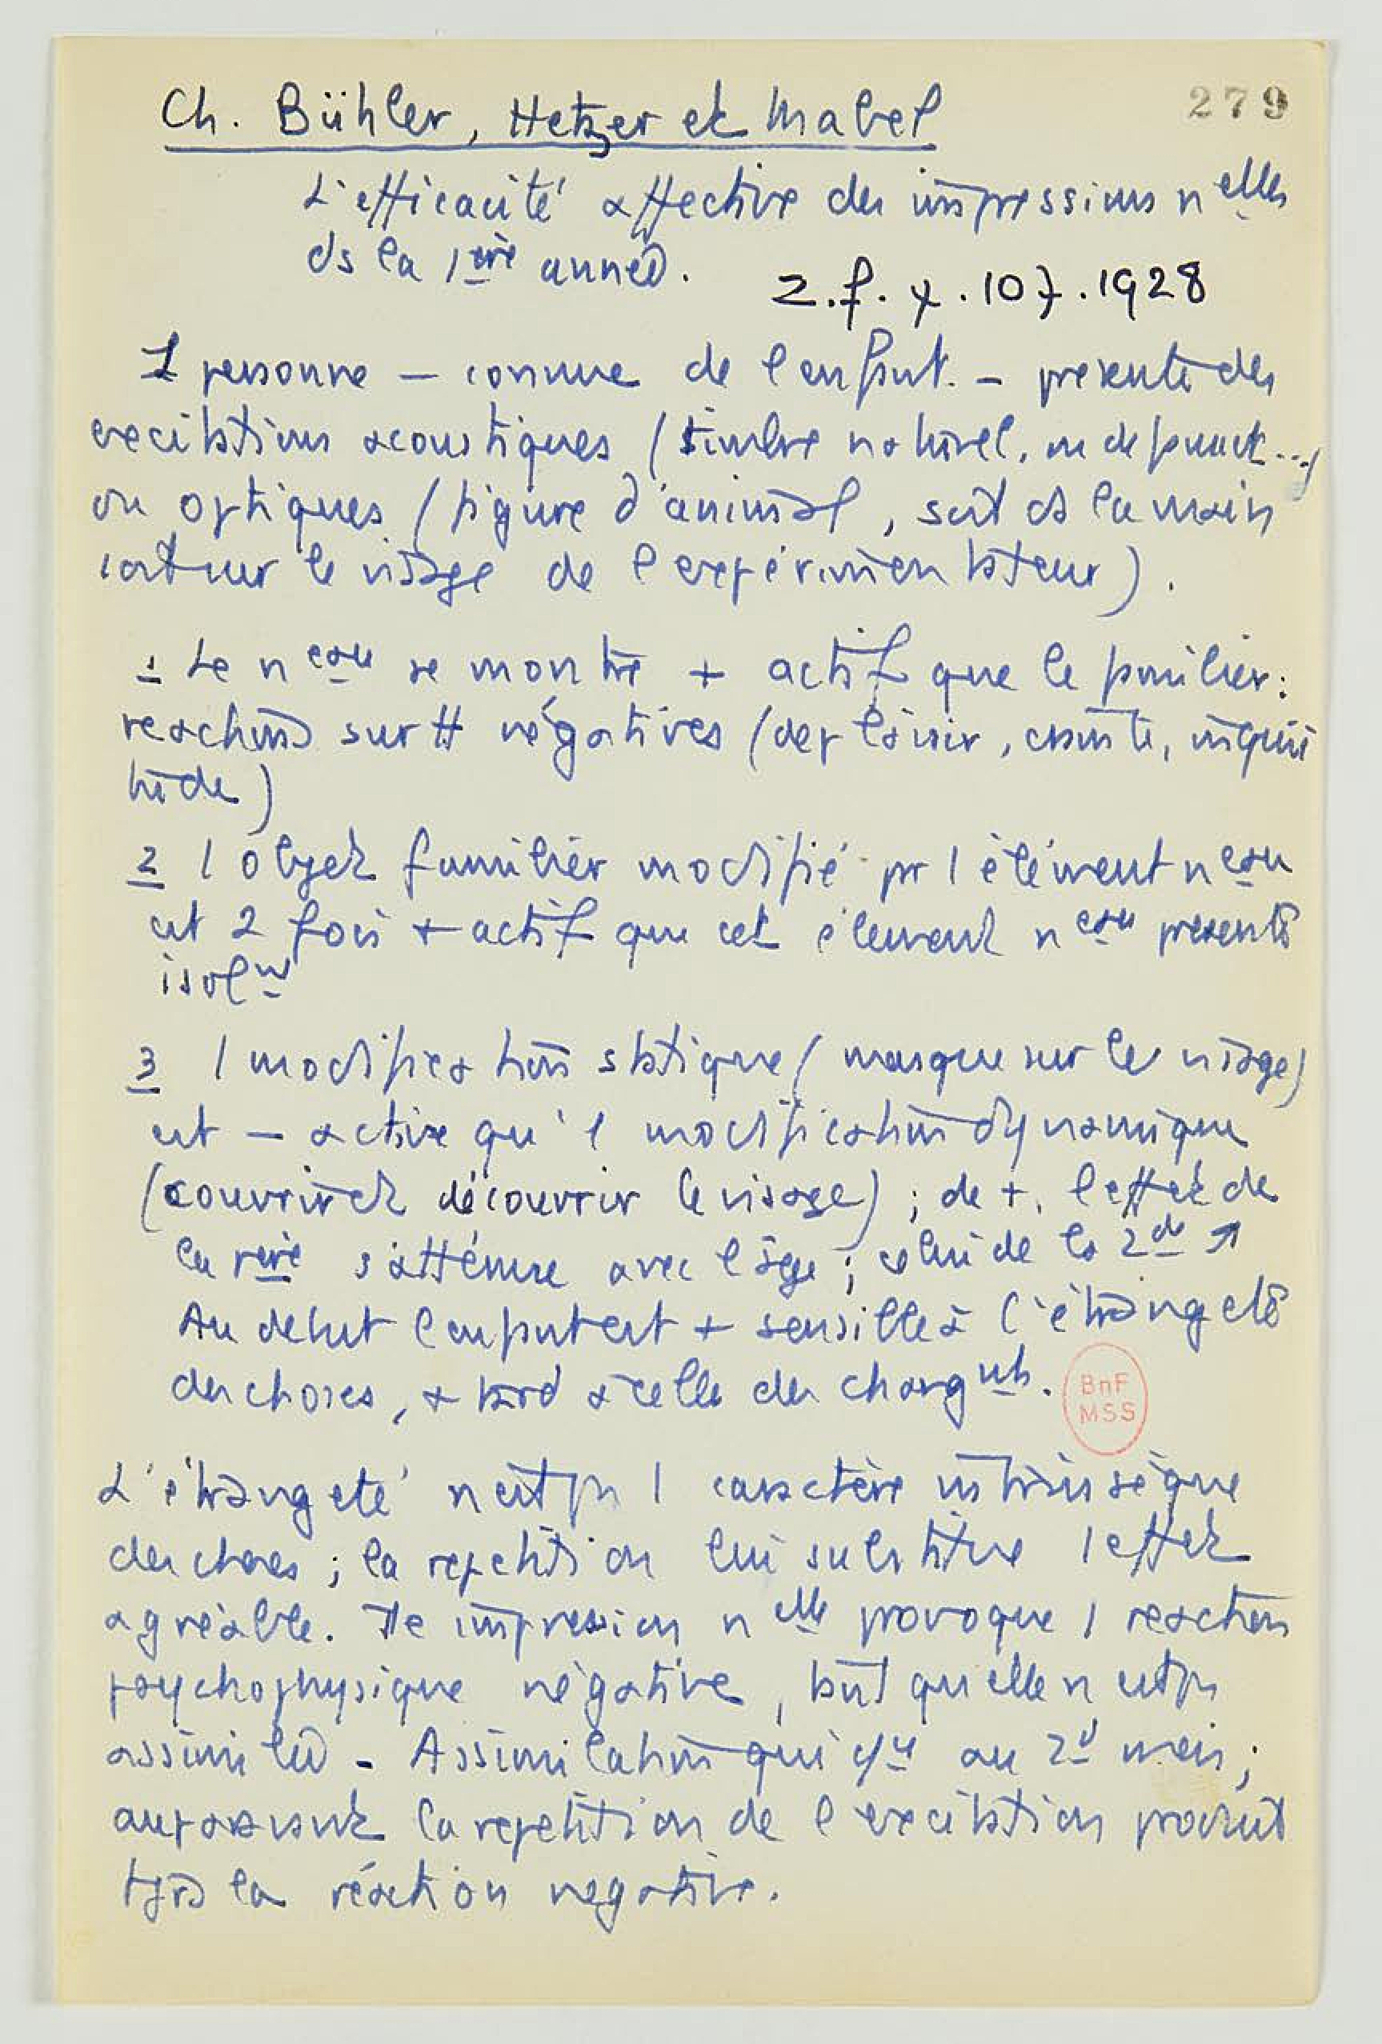 279
Ch. Bühler, Hetzer et Mabel
L'efficacité affective des impressions nelles
ds la 1ère année.
Z.f. ψ. 107. 1928
1 personne – connue de l'enfant. – présente des
excitations acoustiques (timbre naturel, ou de fausset...)
ou optiques (figure d'animal, soit ds la main
soit sur le visage de l'expérimentateur).
1 Le neau se montre + actif que le familier:
réactions surtt négatives (déplaisir, crainte, inquié
tude)
2 1 objet familier modifié pr 1 élément neau
est 2 fois + actif que cet élément neau présenté
isolmt
3 1 modification statique (masque sur le visage)
est – active qu'1 modification dynamique
(couvrir et découvrir le visage); de +, l'effet de
la 1ère s'atténue avec l'âge; celui de la 2de ↗
Au début l'enfant est + sensible à l'étrangeté
des choses, + tard à celle des changmts.
BnF
MSS
L'étrangeté n'est pas 1 caractère intrinsèque
des choses; la répétition lui substitue 1 effet
agréable. Tte impression nelle provoque 1 réaction
psychophysique négative, tant qu'elle n'est pas
assimilée – Assimilation qui au 2d mois;
auparavant la répétition de l'excitation produit
tjrs la réaction négative.